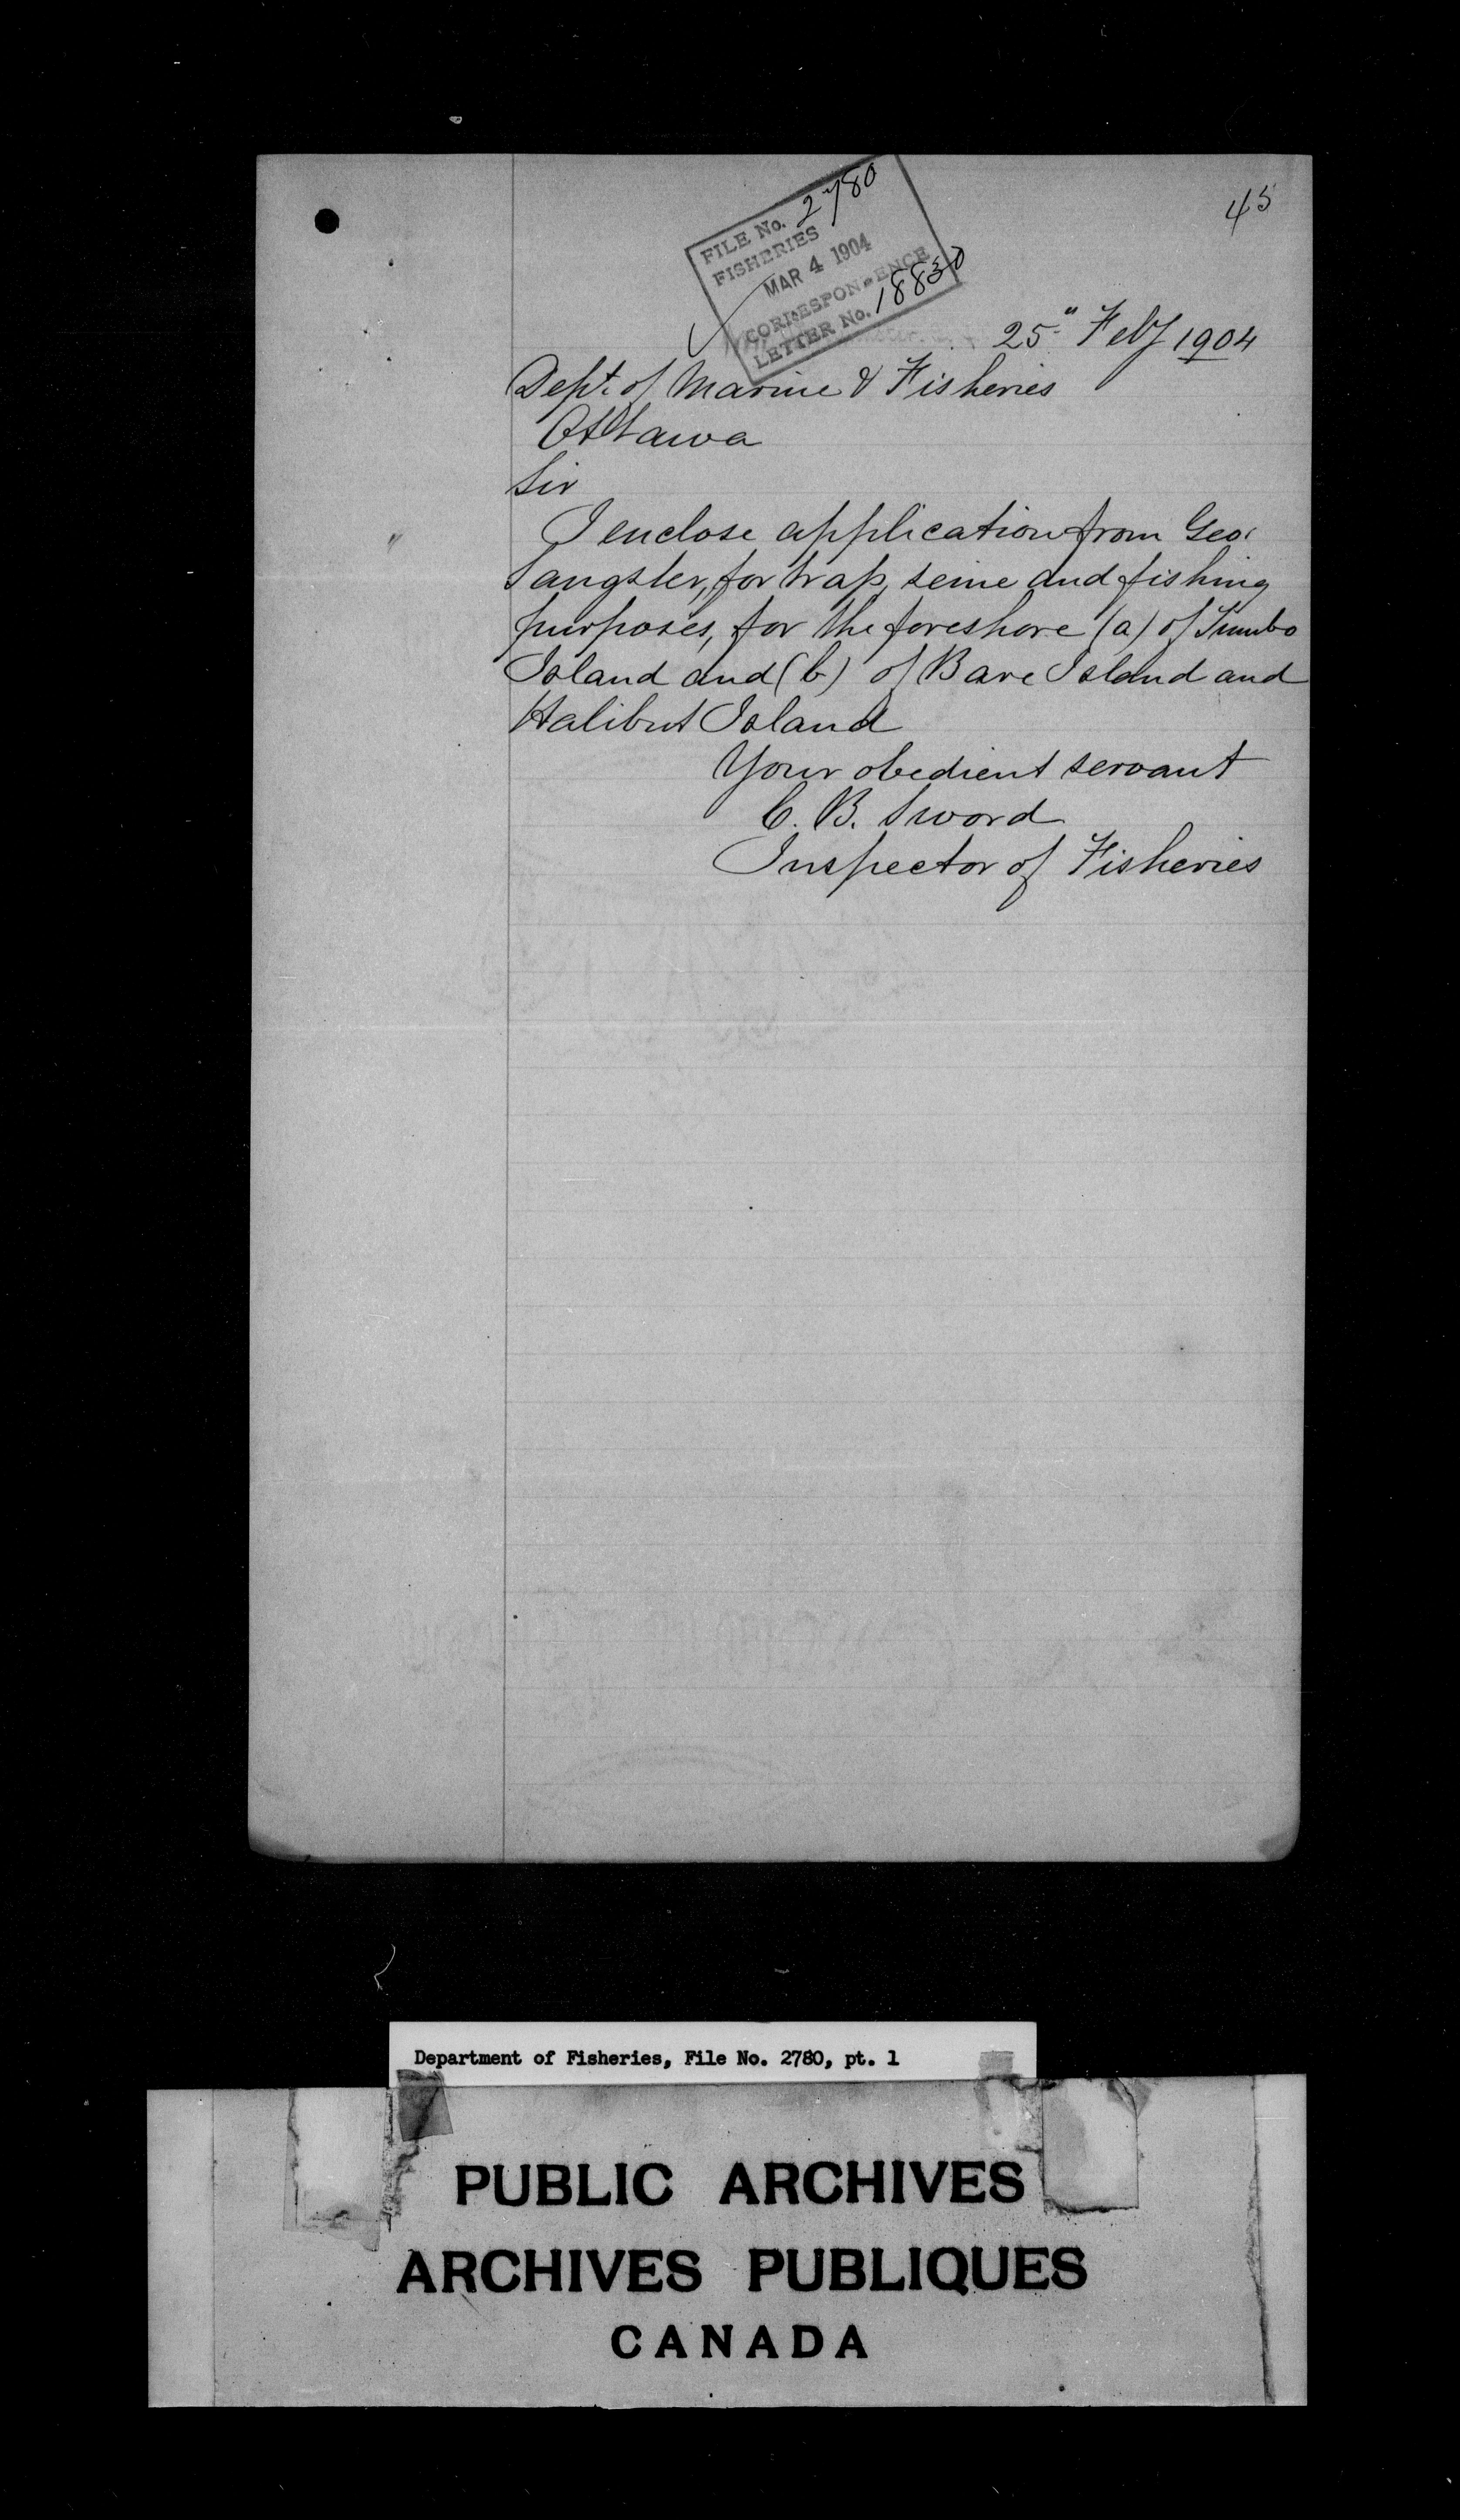 45
FILE No. 2780
FISHERIES
MAR 4 1904
CORRESPONDENCE
LETTER No. 18830
25" Feby 1904
Dept. of Marine & Fisheries
Ottawa
Sir
I enclose application from Geo.
Sangster, for trap, seine and fishing
purposes, for the foreshore (a) of Tumbo
Island and (b) of Bare Island and
Halibut Island
Your obedient servant
C. B. Sword
Inspector of Fisheries
Department of Fisheries, File No. 2780, pt. 1
PUBLIC ARCHIVES
ARCHIVES PUBLIQUES
CANADA